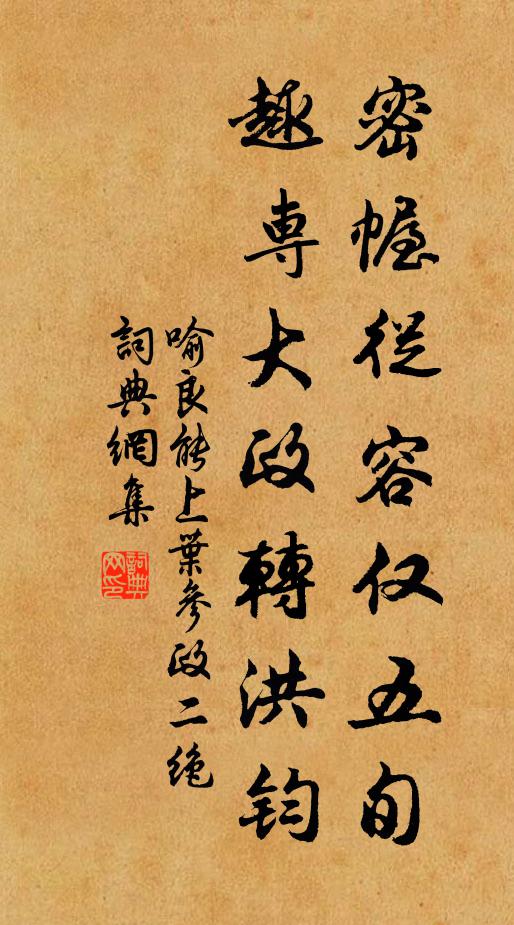 密幄從容仅五旬
趣専大政轉洪钧
喻良能上葉參政二絶
詞典網集
詞典网印